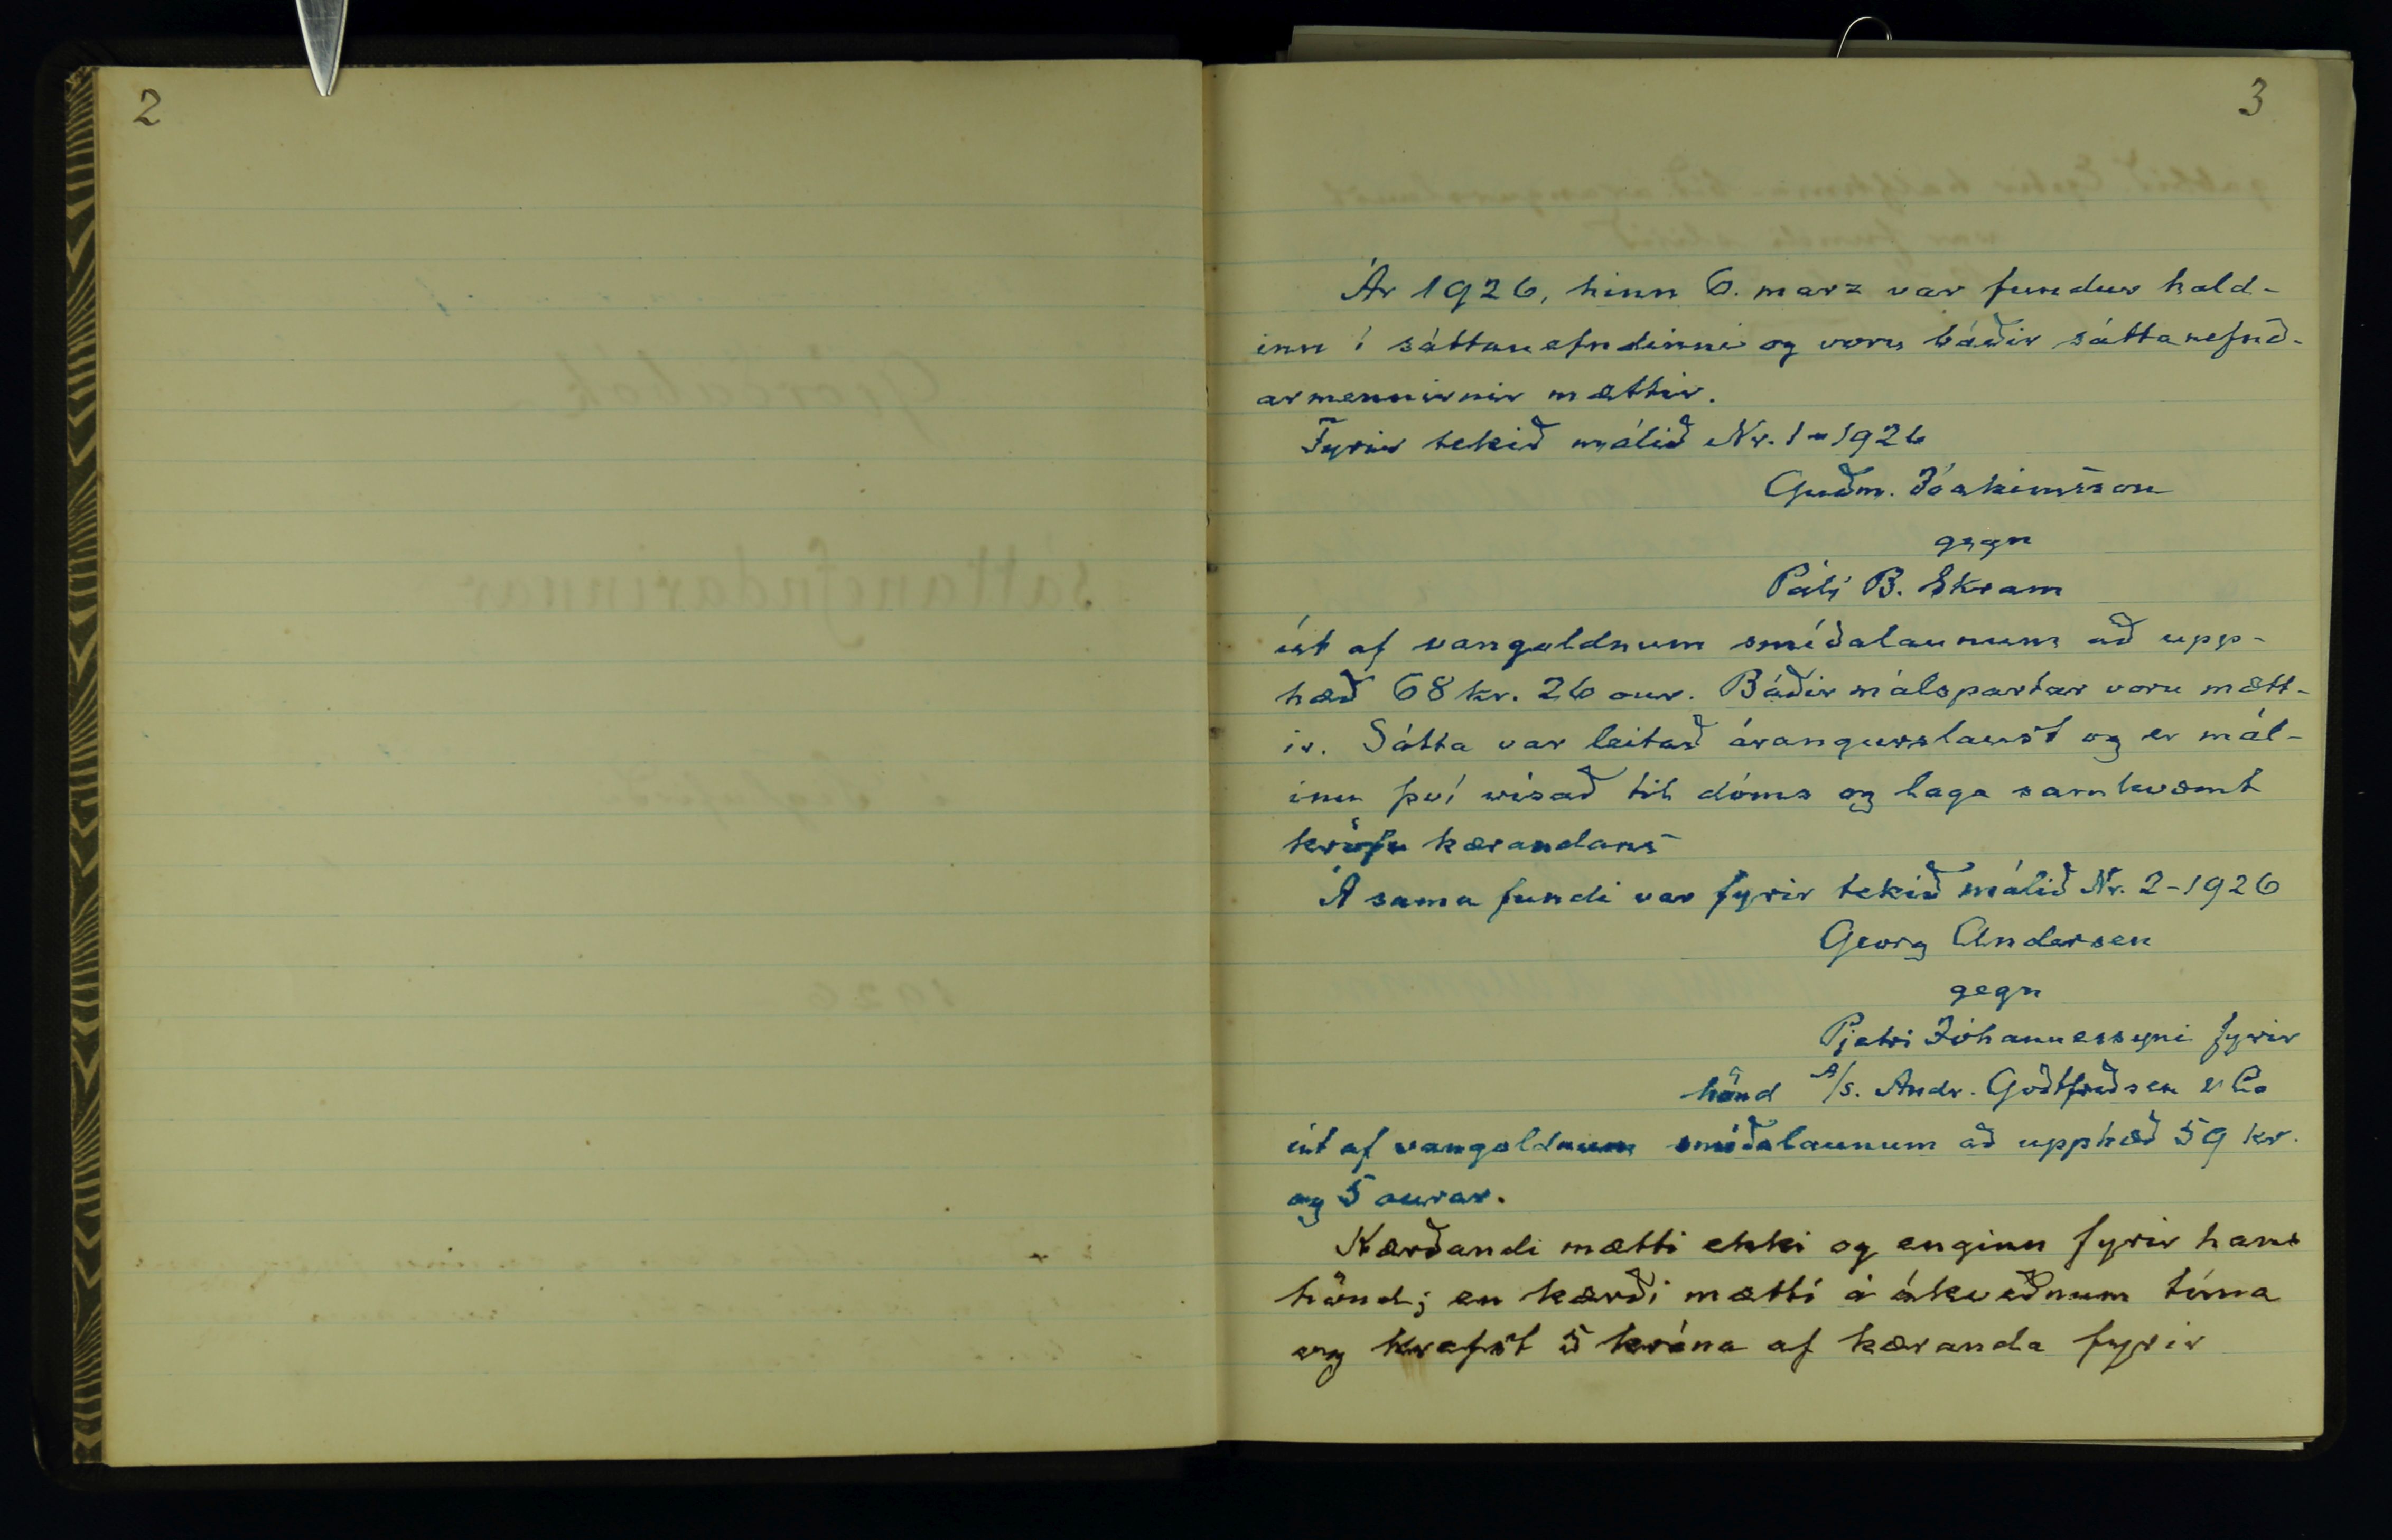 2
3
Ár 1926, hinn 6. marz var fundur hald-
inn í sáttanefndinni og voru báðir sáttanefnd-
armennirnir mættir.
Fyrir tekið málið Nr. 1-1926
Guðm. Jóakimsson
gegn
Páli B. Skram
út af vangoldnum smíðalaunum að upp-
hæð 68 kr. 26 aur. Báðir málspartar voru mætt-
ir. Sátta var leitað árangurslaust og er mál-
inu því vísað til dóms og laga samkvæmt
kröfu kærandans
Á sama fundi var fyrir tekið málið Nr. 2-1926
Georg Andersen
gegn
Pjetri Jóhannessyni fyrir
hönd A/S. Andr. Godtfredsen & Co
út af vangoldnum smíðalaunum að upphæð 59 kr.
og 5 aurar.
Kærandi mætti ekki og enginn fyrir hans
hönd; en kærði mætti á ákveðnum tíma
og krafist 5 króna af kæranda fyrir